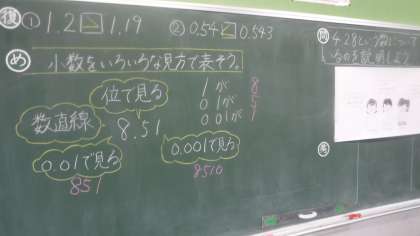 復 ① 1.2 > 1.19 ② 0.54 < 0.543
め 小数をいろいろな見方で表そう。
位で見る
1が 8
0.1が 5
0.01が 1
数直線
8.51
0.01で見る
851
0.001で見る
8510
問 4.28という数について